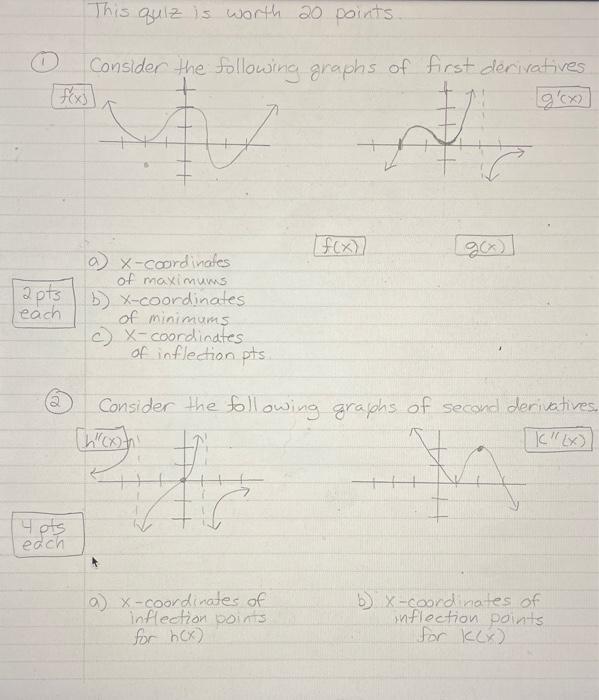 This quiz is worth 20 points.
① Consider the following graphs of first derivatives
f'(x)
g'(x)
f(x)
g(x)
a) x-coordinates
of maximums
2 pts
each
b) x-coordinates
of minimums
c) x-coordinates
of inflection pts.
② Consider the following graphs of second derivatives.
h"(x)
K"(x)
4 pts
each
a) x-coordinates of
inflection points
for h(x)
b) x-coordinates of
inflection points
for K(x)